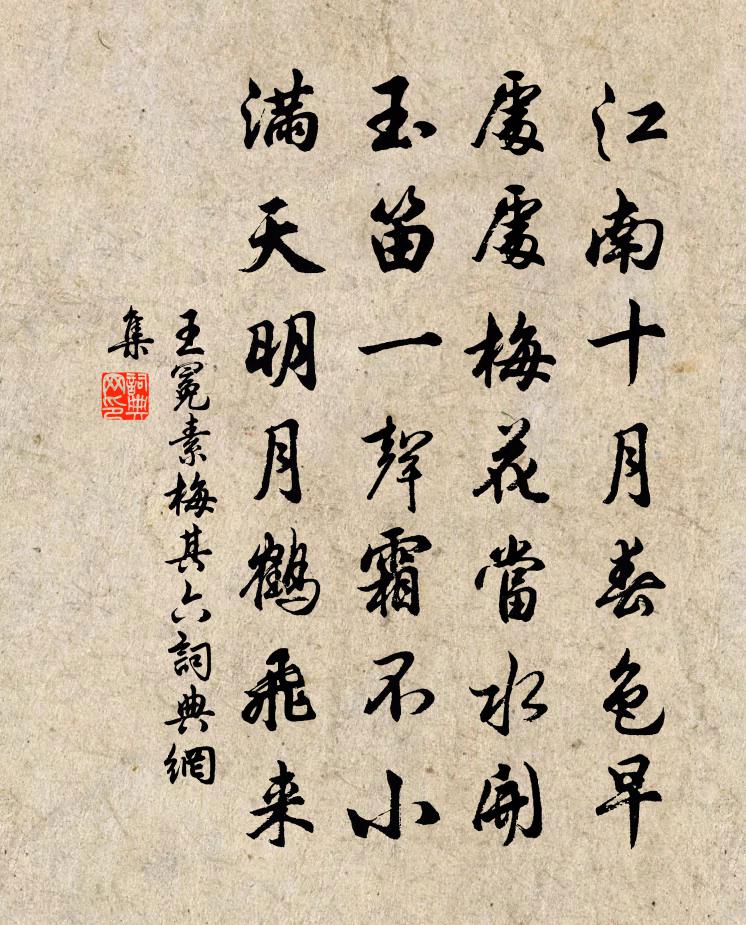 江南十月春色早
處處梅花當水開
玉笛一聲霜不小
滿天明月鶴飛来
王冕素梅其六詞典網
集
詞典
网印